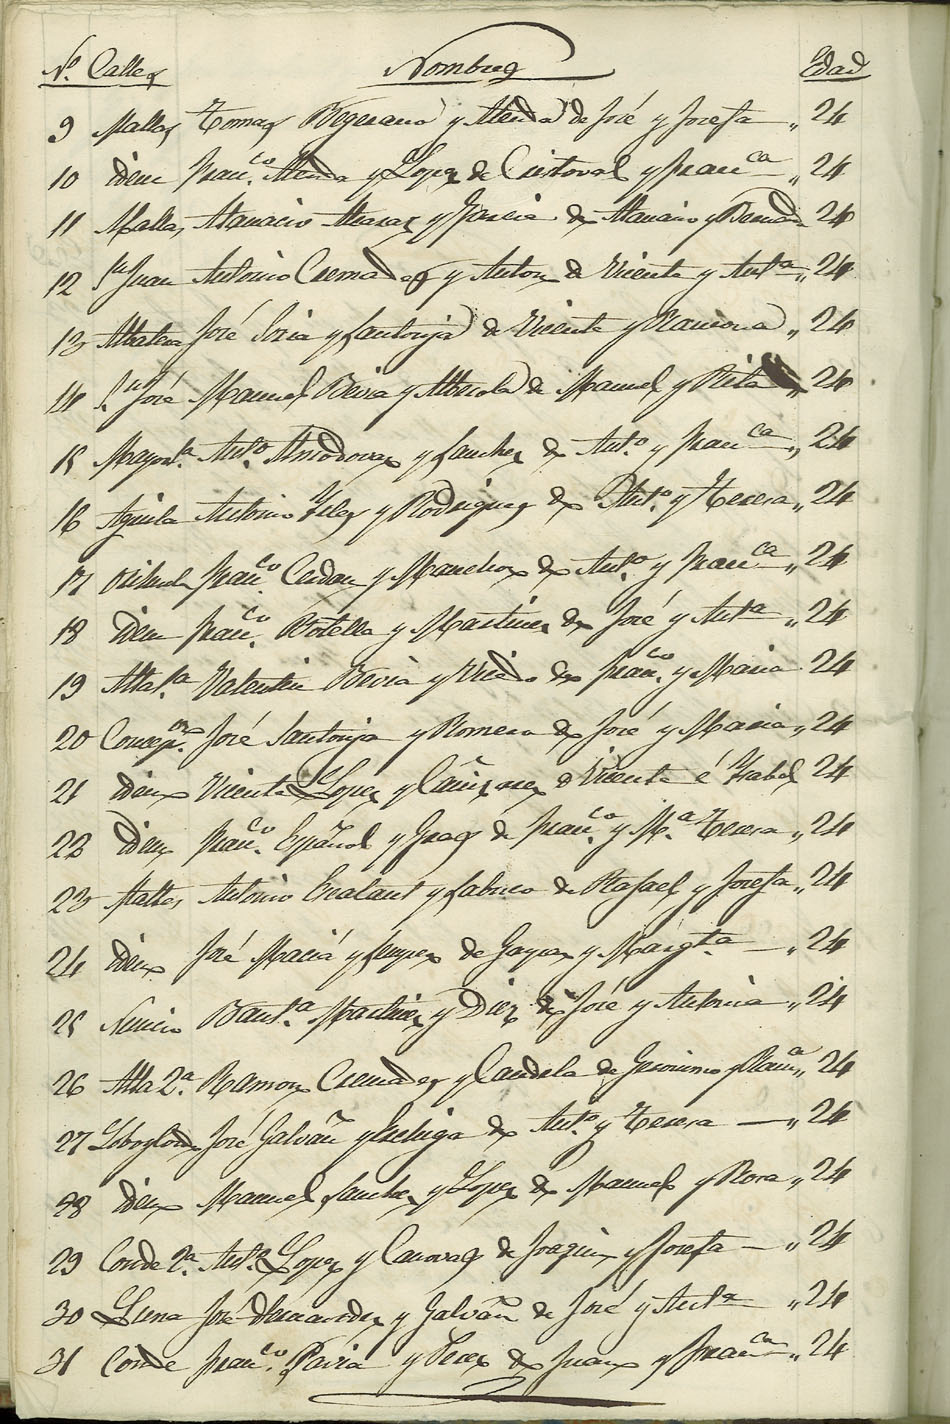 No. Calles Nombres Edad
9 Malla, Tomas Bejerano y Alenda de José y Josefa " 24
10 Idem Franco. Alenda y Lopez de Cristoval y Franca " 24
11 Malla, Atanacio Alcaraz y Garcia de Atanacio y 24
12 Sn Juan Antonio Cremades y Anton de Vicente y Anta " 24
13 José Soria y Santonja de Vicente y Ramona " 24
14 Sn José Manuel Bevia y de Manuel y Rita " 24
15 Mayor 1a. Anto. Almodovar y Sanchez de Anto. y Franca " 24
16 Aguila Antonio y Rodriguez de Anto. y Teresa " 24
17 Orihuela Franco. Cerdan y de Anto. y Franca " 24
18 Idem Franco. Botella y Martinez de José y Anta " 24
19 Alta 1a Valentin Bevia y de Franco. y Maria 24
20 Concepon. José Santonja y Romera de José y Maria " 24
21 Idem Vicente Lopez y Cañizares de Vicente é Ysabel 24
22 Idem Franco. Español y Gras de Franco. y Ma. Teresa " 24
23 Antonio y de Rafael y Josefa " 24
24 Idem José Maciá y de Gaspar y Margta. — " 24
25 Bauta. Martinez y Diez de José y Antonia " 24
26 Alta 2a. Ramon Cremades y Candela de Geronimo y " 24
27 José Galvañ y de Anto. y Teresa — " 24
28 Idem Manuel Sanchez y Lopez de Manuel y Rosa " 24
29 Conde 2a. Anto. Lopez y Canovas de Joaquin y Josefa — " 24
30 Llena José Hernandez y Galvañ de José y Anta " 24
31 Conde Franco. Pavia y Perez de Juan y Franca " 24